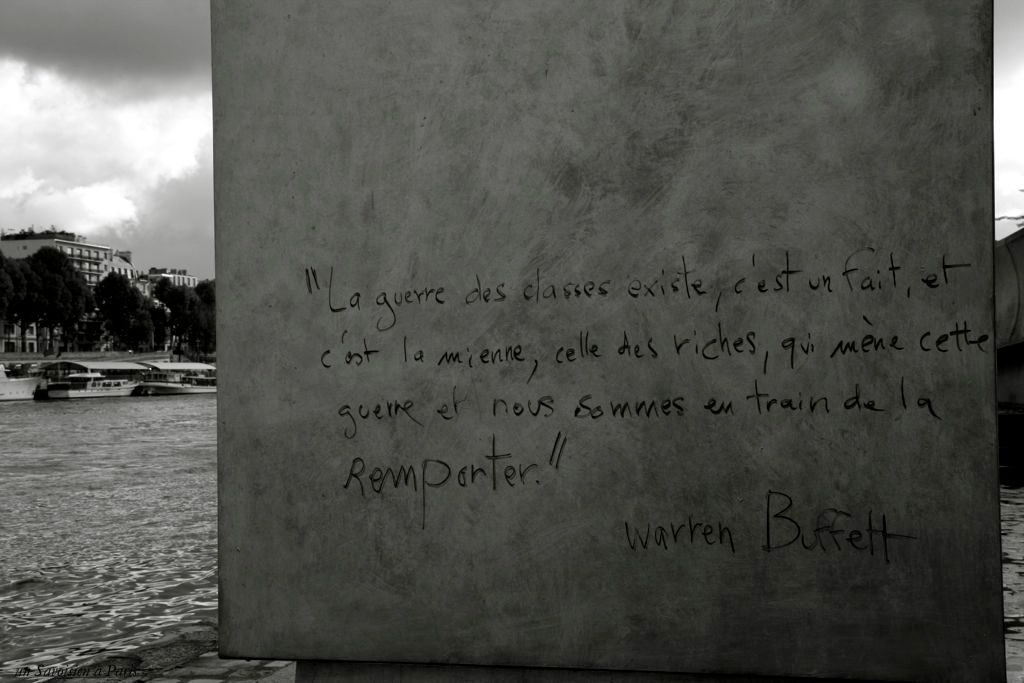 "La guerre des classes existe, c'est un fait, et
c'est la mienne, celle des riches, qui mène cette
guerre et nous sommes en train de la
Remporter."
Warren Buffett
un Savoisien à Paris